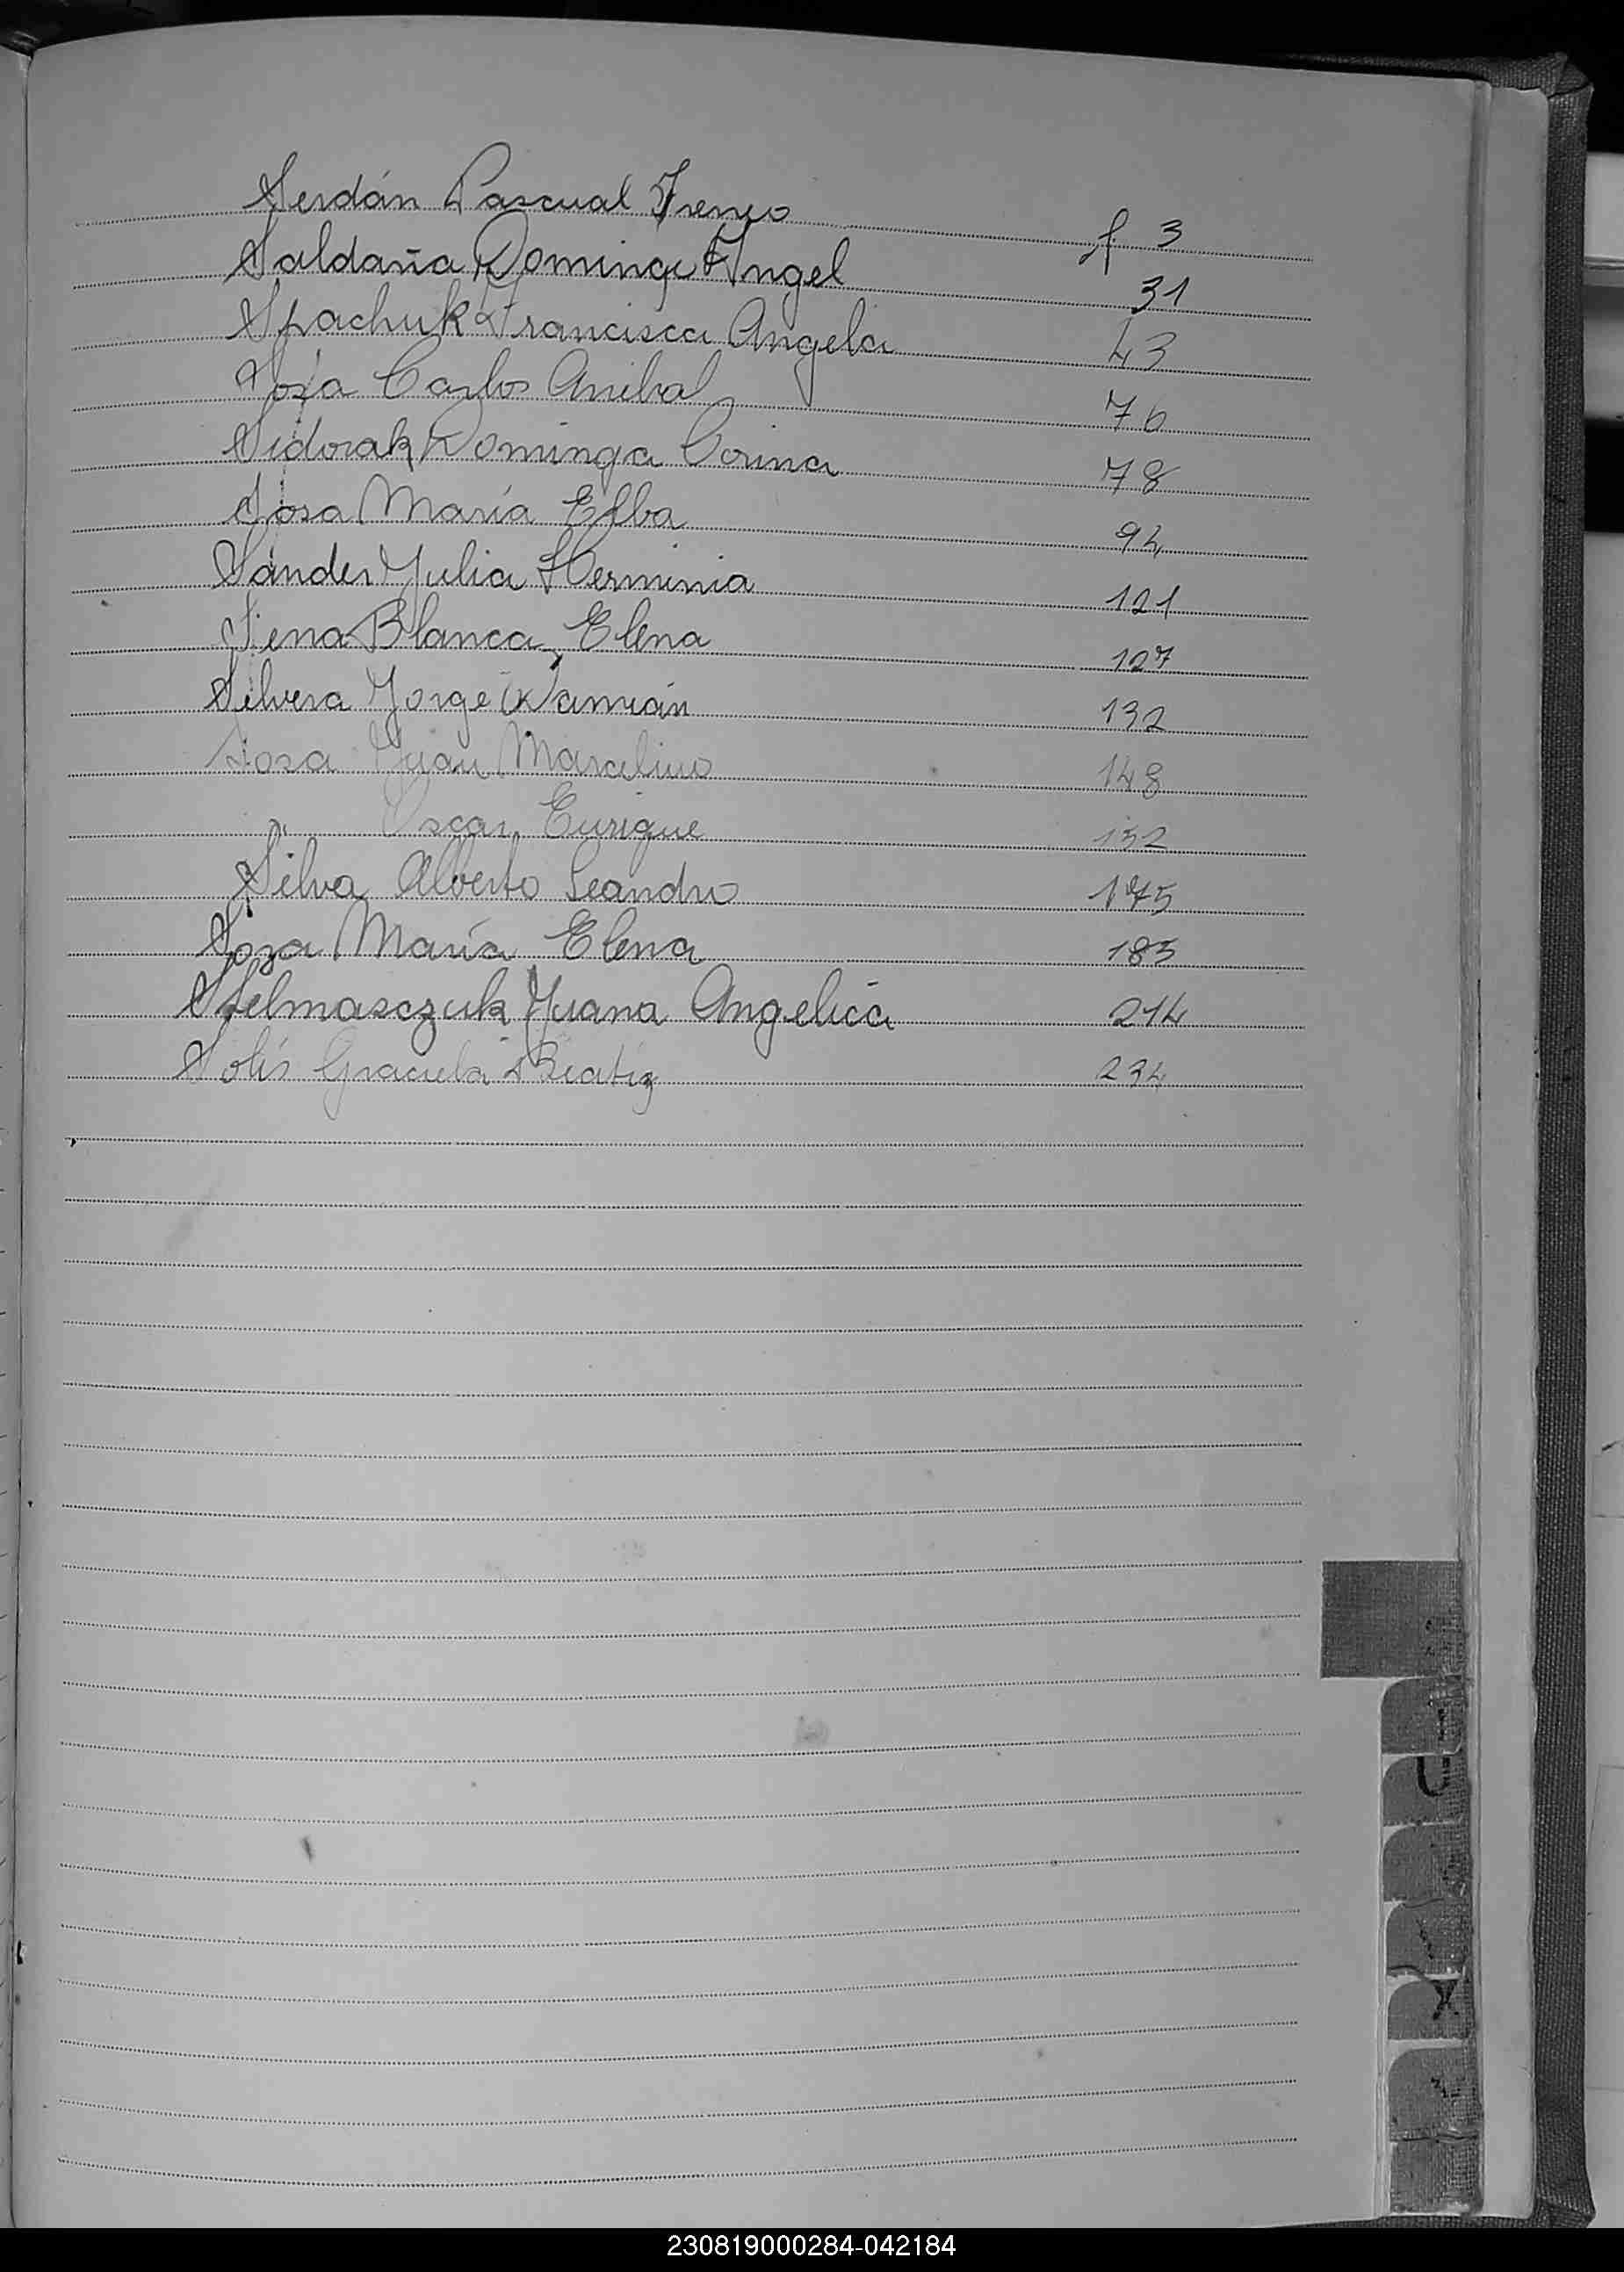 Serdán Pascual Ireneo f 3
Saldaña Domingo Angel 31
Spachuk Francisca Angela 43
Sosa Carlos Anibal 76
Sidorak Dominga Corina 78
Sosa María Elba 94
Sander Julia Herminia 121
Sena Blanca Elena 127
Silvera Jorge Damián 132
Sosa Juan Marcelino 148
" Oscar Enrique 152
Silva Alberto Leandro 175
Sosa María Elena 185
Stelmasczuk Juana Angelica 214
Solís Graciela Beatiz 234
U
X
230819000284-042184